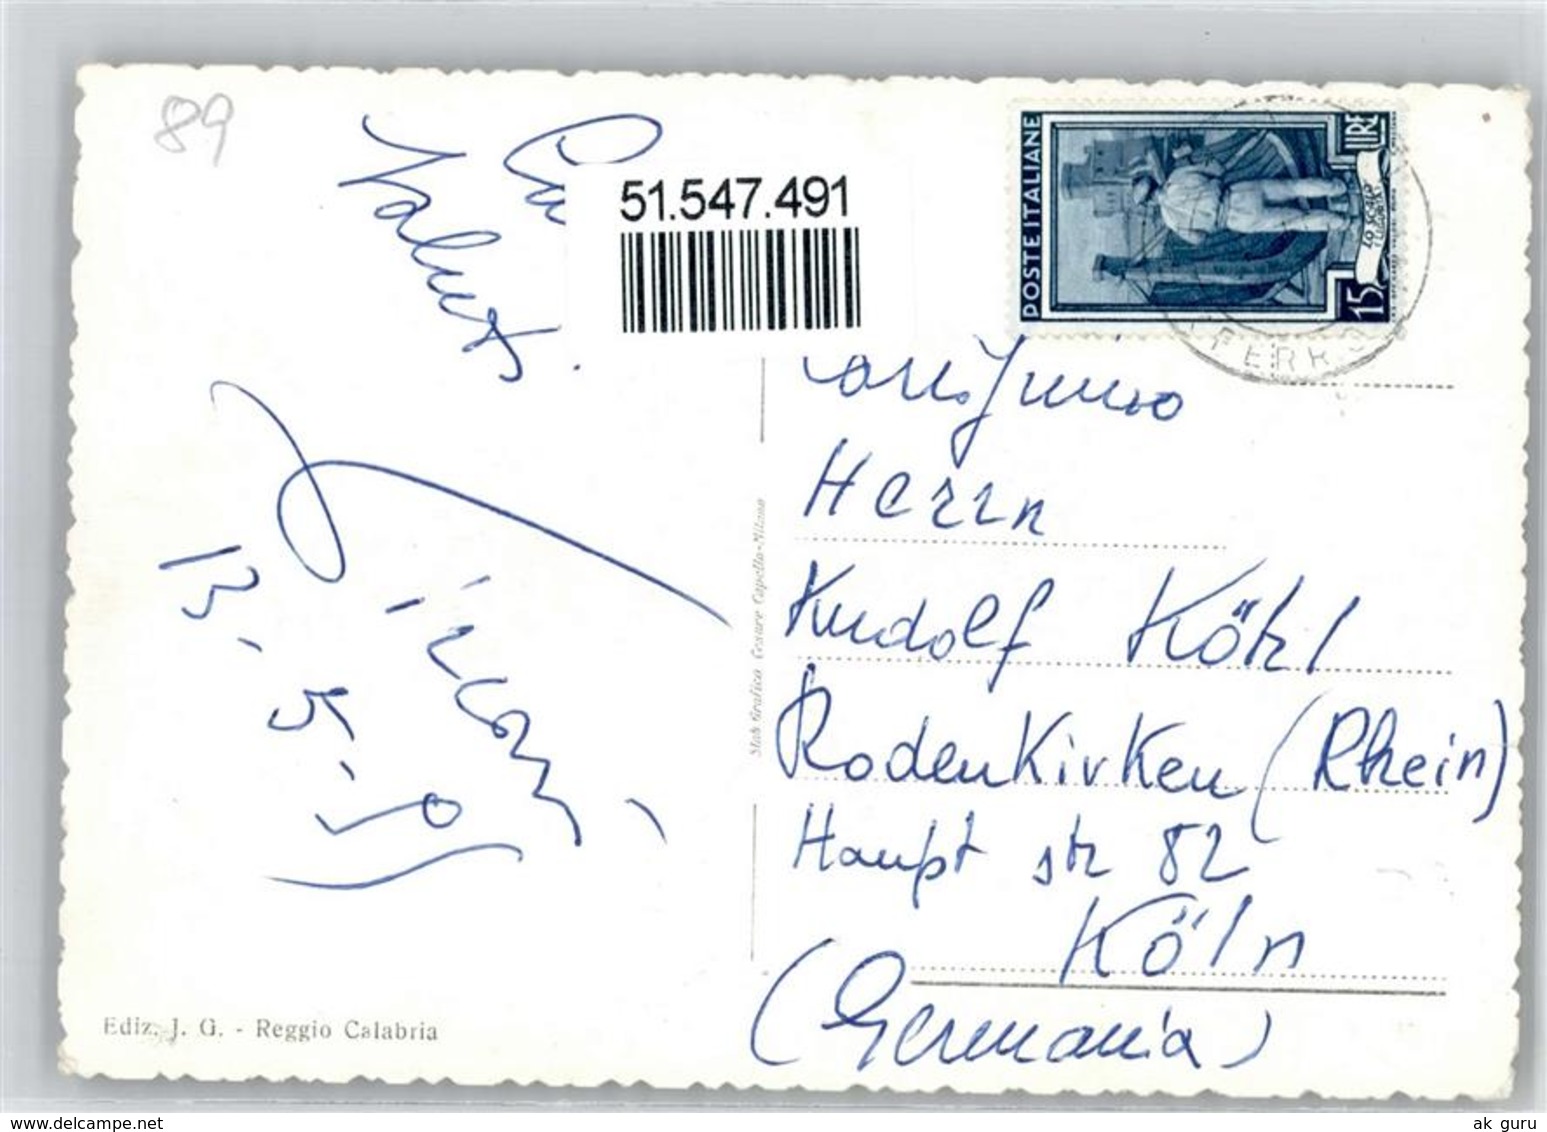 89
Ca
Saluti.
13-5-
51.547.491
POSTE ITALIANE
LIRE
15
FERR
Herrn
Rudolf Kötzl
Rodenkirken (Rhein)
Haupt str 82
Köln
(Germania)
Stab Grafico Cesare Capello-Milano
Ediz. J. G. - Reggio Calabria
ak guru
www.delcampe.net